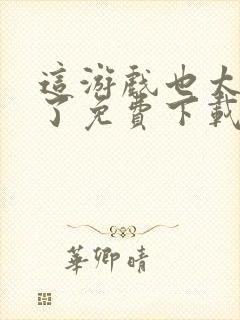 這游戲也太
了免費下載
華卿晴